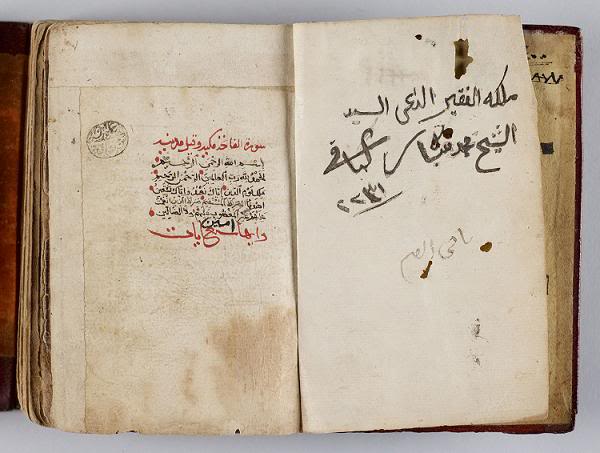 ملكه الفقير الداعي السيد
الشيخ محمد
سورة الفاتحة مكية وقيل مدنية
بسم الله الرحمن الرحيم
الحمد لله رب العالمين الرحمن الرحيم
ملك يوم الدين اياك نعبد واياك نستعين
اهدنا الصراط المستقيم صراط الذين انعمت
عليهم غير المغضوب عليهم ولا الضالين
امين
سبع ايات